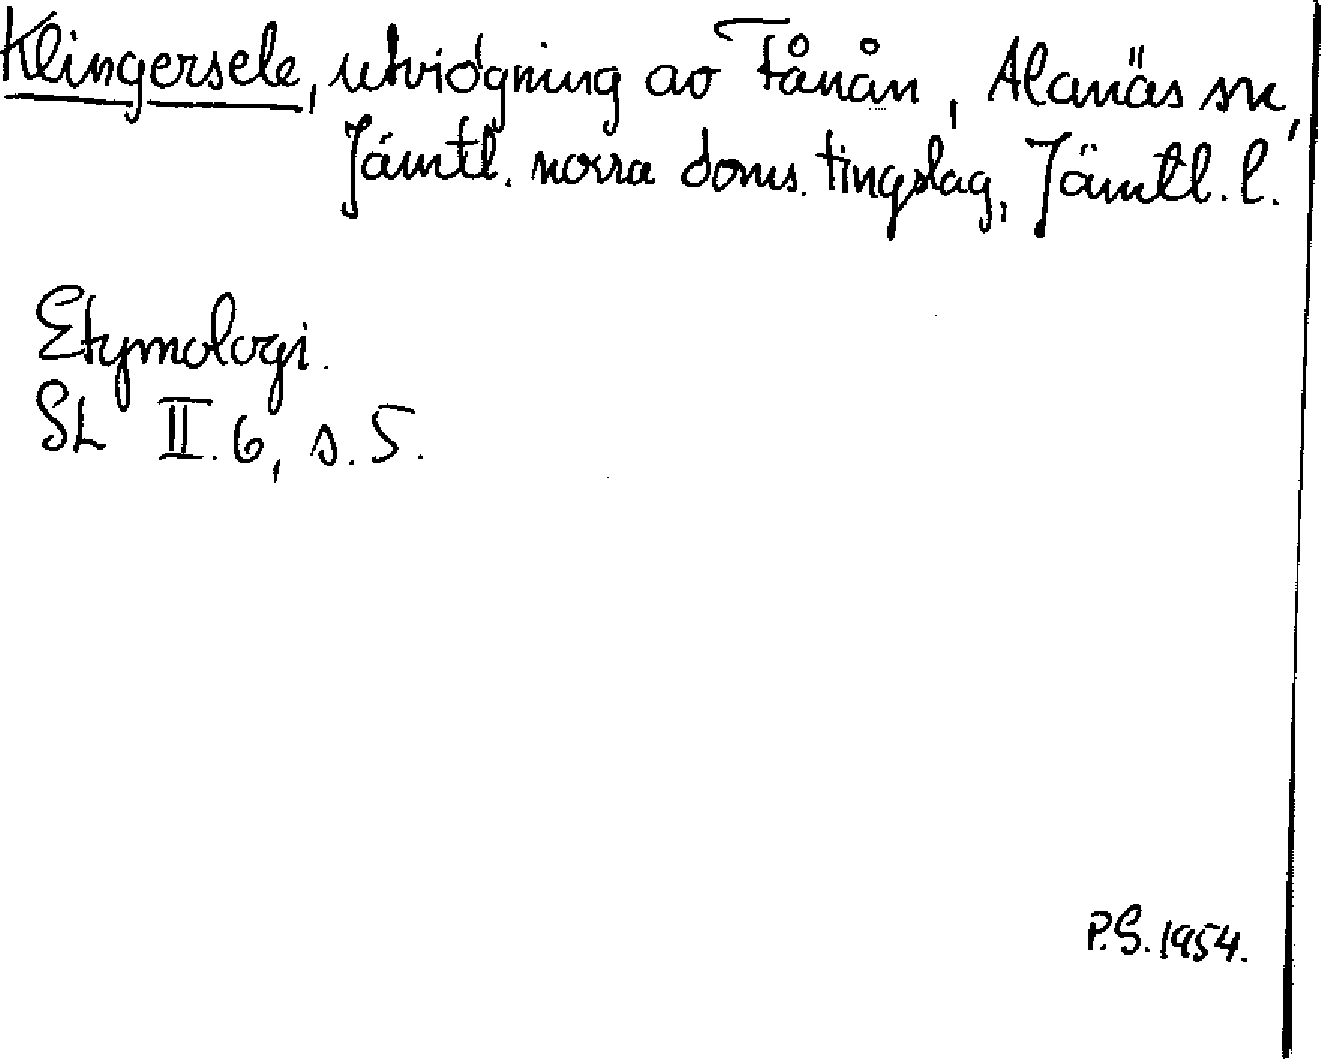 Klingersele, utvidgning av Fånån, Alanäs sn,
Jämtl. norra doms. tingslag, Jämtl. l.
Etymologi.
SL II.6, s.5.
P.S. 1954.